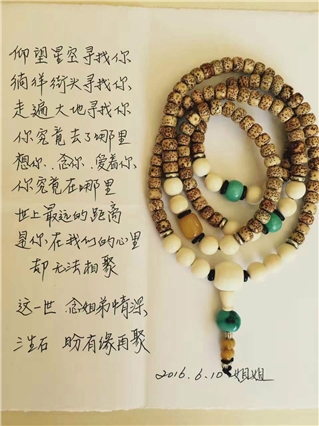 仰望星空寻找你
徜徉街头寻找你
走遍大地寻找你
你究竟去了哪里
想你、念你、爱着你
你究竟在哪里
世上最远的距离
是你在我们的心里
却无法相聚
这一世 念姐弟情深
三生石 盼有缘再聚
2016.6.10 姐姐